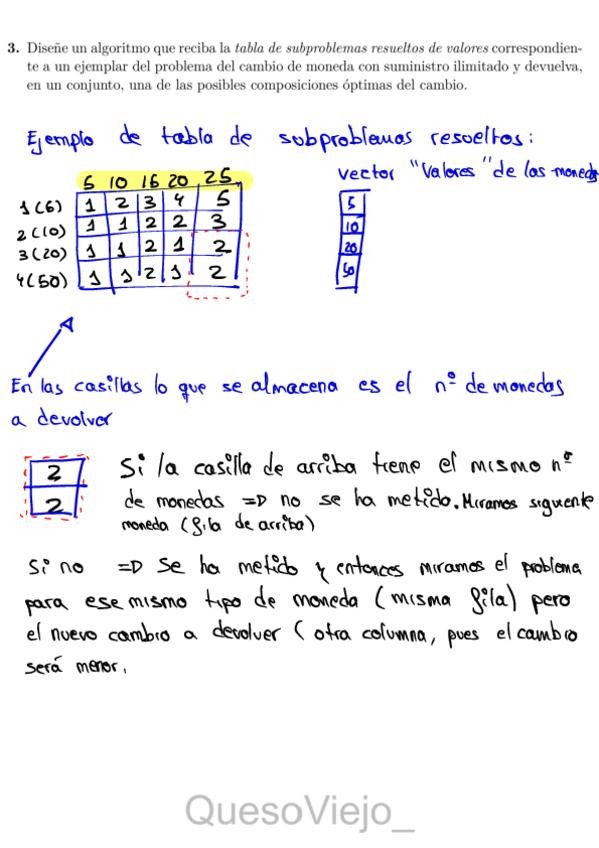 3. Diseñe un algoritmo que reciba la tabla de subproblemas resueltos de valores correspondien-
te a un ejemplar del problema del cambio de moneda con suministro ilimitado y devuelva,
en un conjunto, una de las posibles composiciones óptimas del cambio.
Ejemplo de tabla de subproblemas resueltos:
vector "Valores" de las monedas
5 10 15 20 25
1 (5) 1 2 3 4 5
2 (10) 1 1 2 2 3
3 (20) 1 1 2 1 2
4 (50) 1 1 2 1 2
5
10
20
50
En las casillas lo que se almacena es el nº de monedas
a devolver
2
2
Si la casilla de arriba tiene el mismo nº
de monedas => no se ha metido. Miramos siguiente
moneda (fila de arriba)
Si no => Se ha metido y entonces miramos el problema
para ese mismo tipo de moneda (misma fila) pero
el nuevo cambio a devolver (otra columna, pues el cambio
será menor.
QuesoViejo_